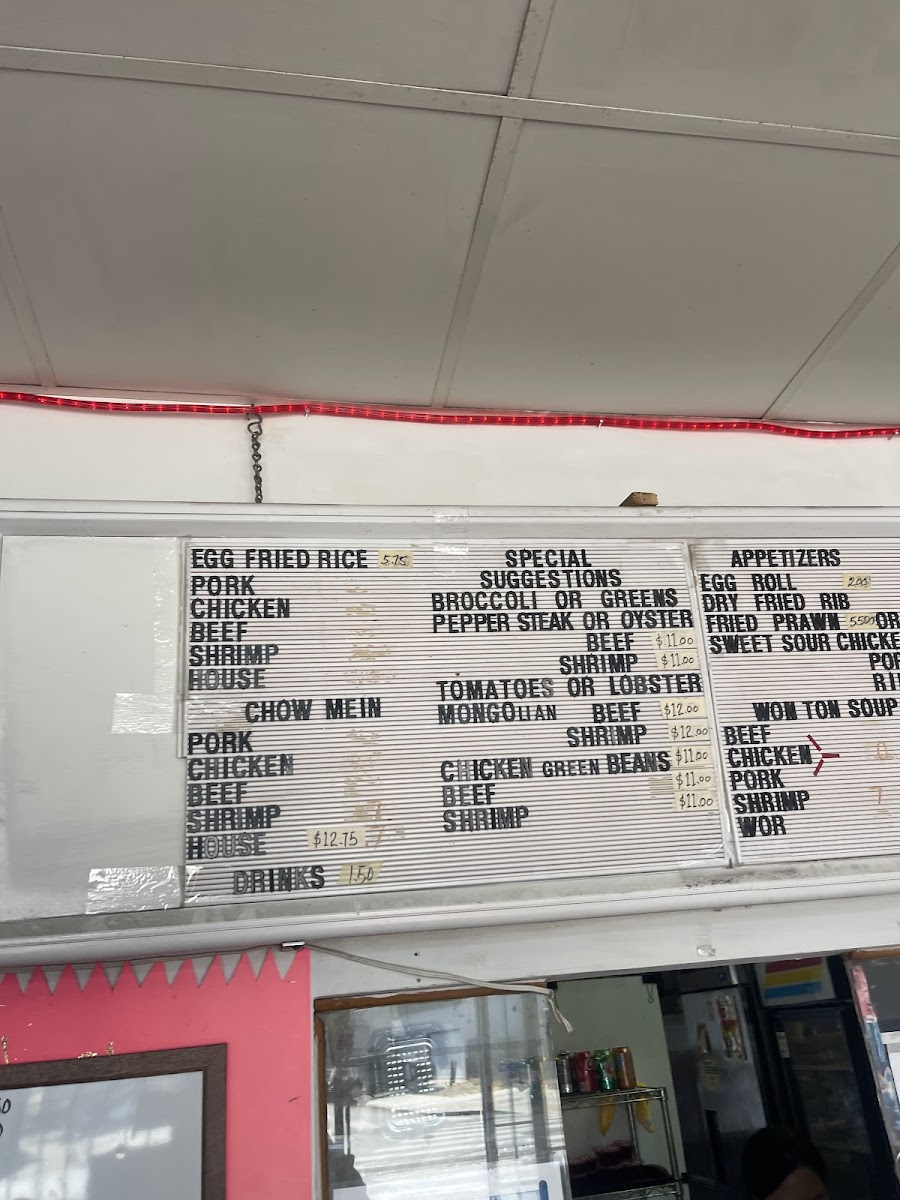 EGG FRIED RICE 5.75
PORK
CHICKEN
BEEF
SHRIMP
HOUSE
CHOW MEIN
PORK
CHICKEN
BEEF
SHRIMP
HOUSE $12.75
DRINKS 1.50
SPECIAL
SUGGESTIONS
BROCCOLI OR GREENS
PEPPER STEAK OR OYSTER
BEEF $11.00
SHRIMP $11.00
TOMATOES OR LOBSTER
MONGOLIAN BEEF $12.00
SHRIMP $12.00
CHICKEN GREEN BEANS $11.00
BEEF $11.00
SHRIMP $11.00
APPETIZERS
EGG ROLL 2.00
DRY FRIED RIB
FRIED PRAWN OR
SWEET SOUR CHICKE
POR
RI
WON TON SOUP
BEEF
CHICKEN
PORK
SHRIMP 7
WOR